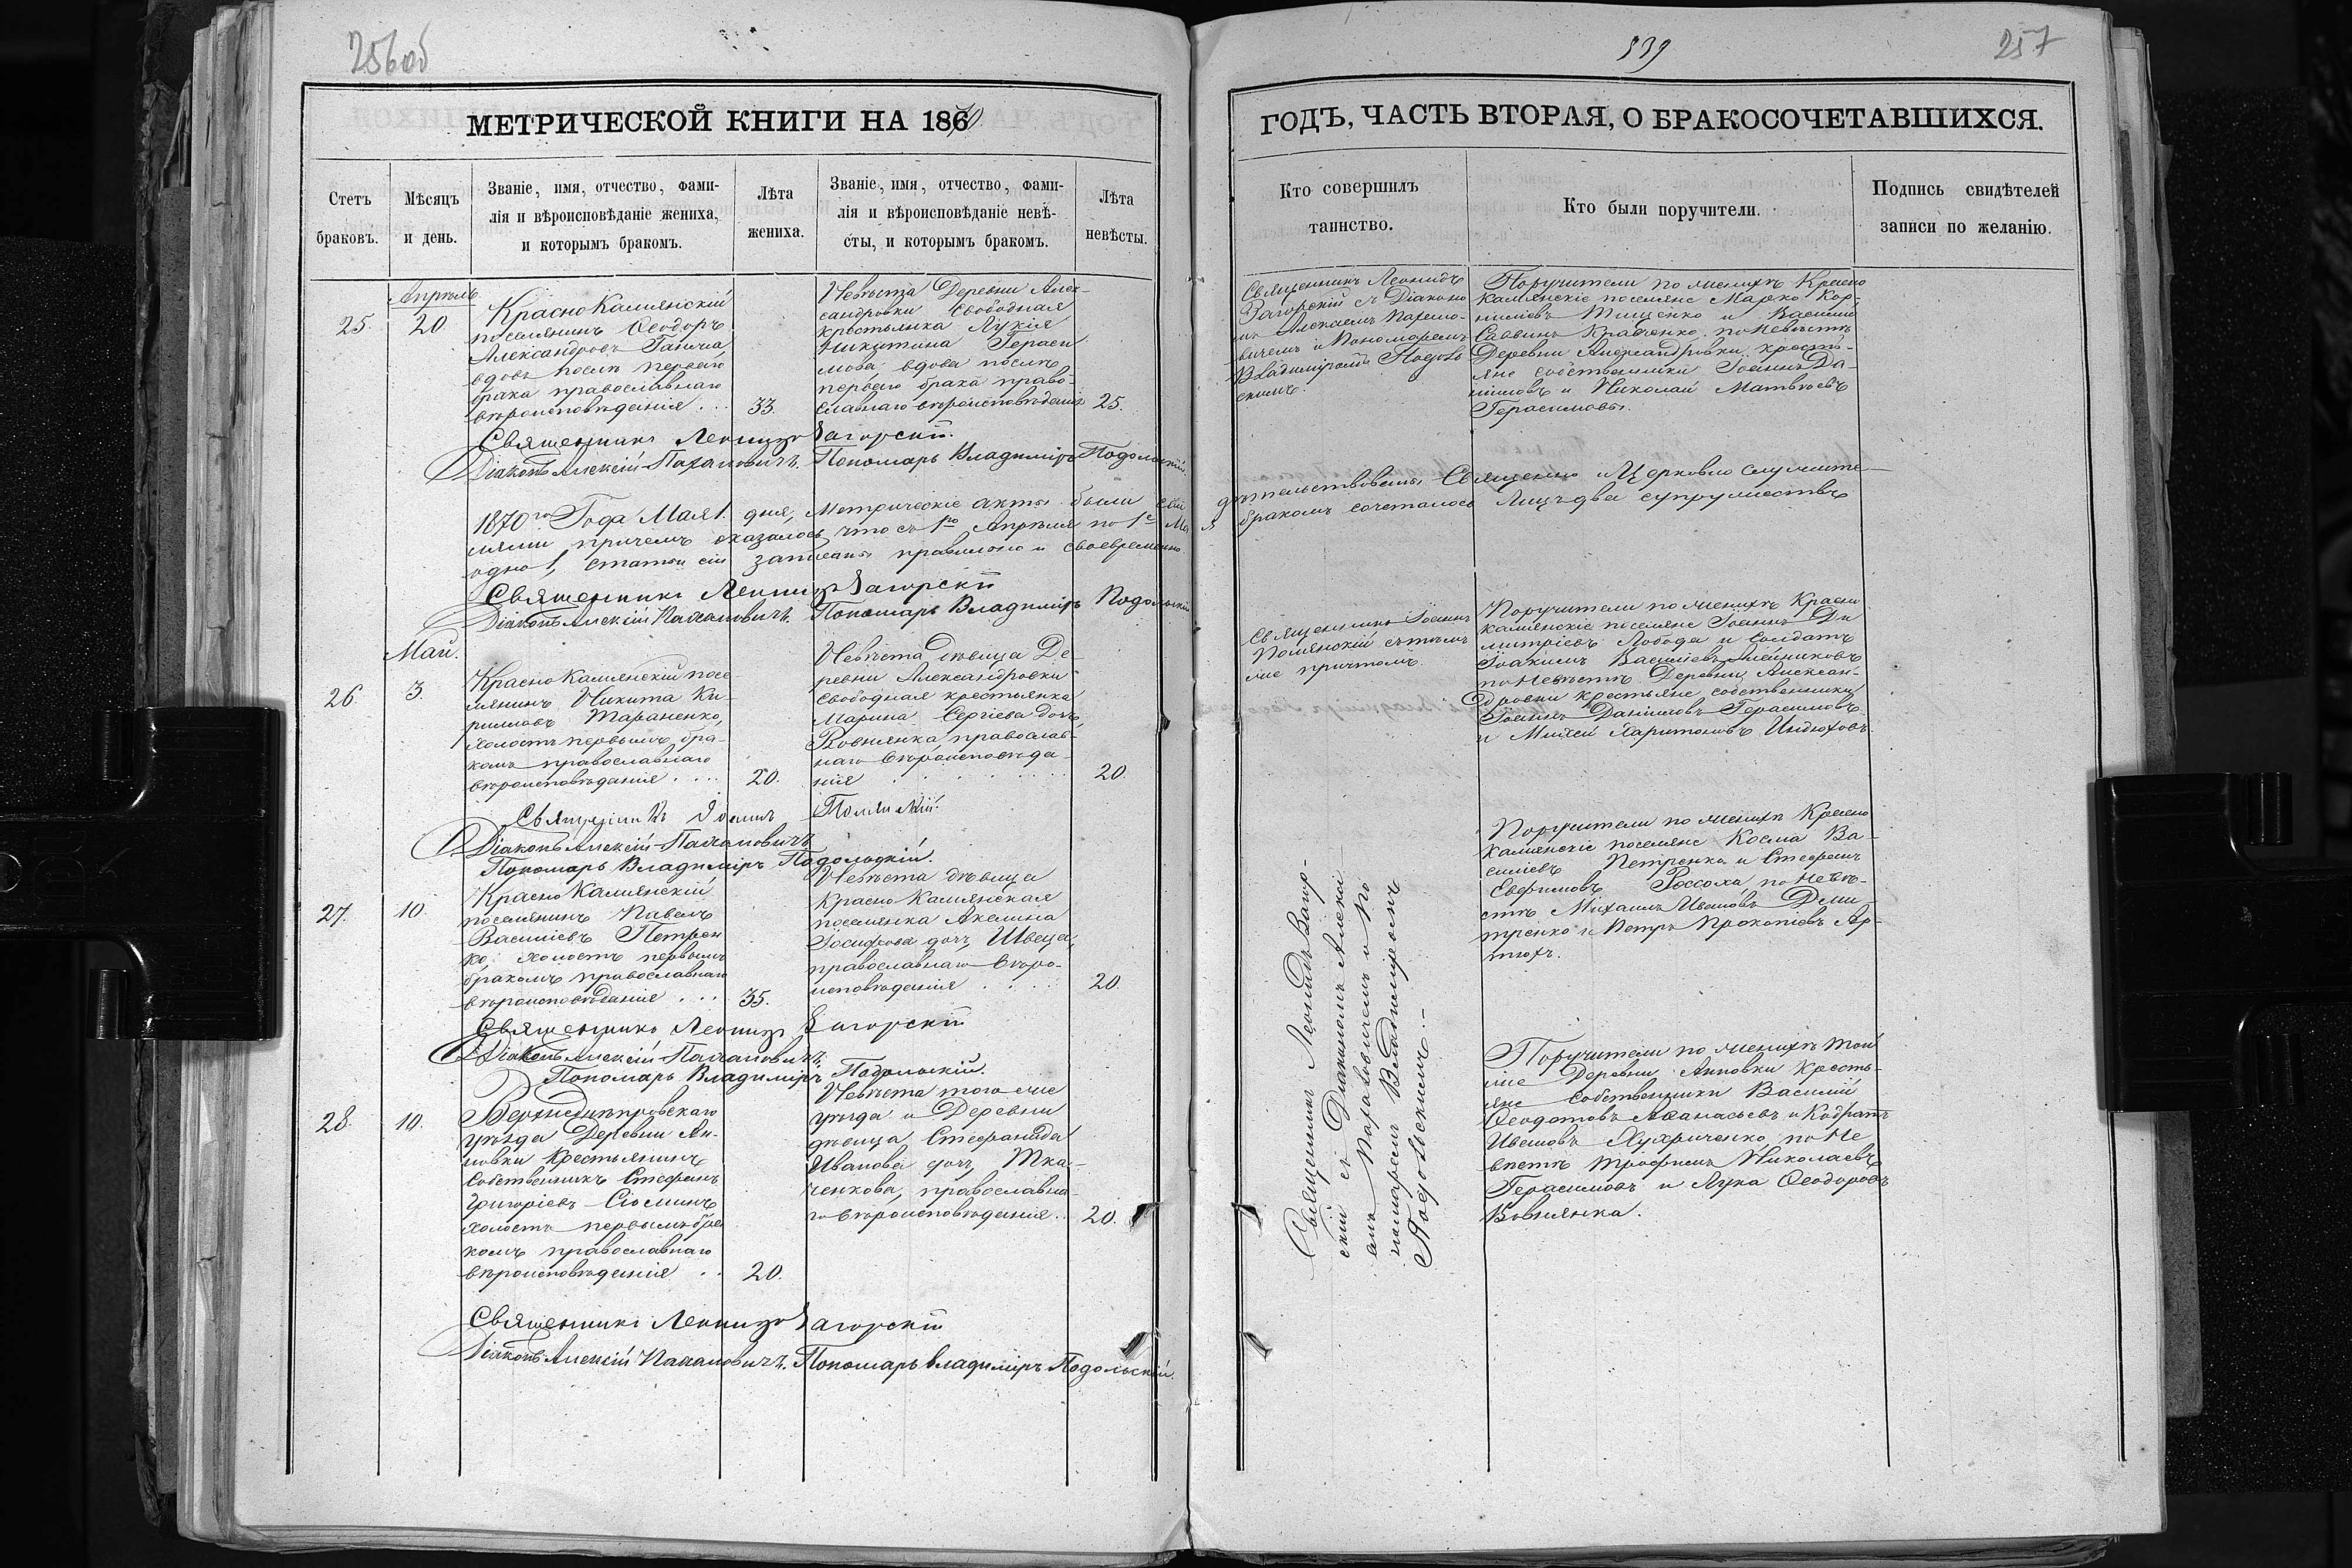 256об
МЕТРИЧЕСКОЙ КНИГИ НА 1870
Счетъ
браковъ.
Мѣсяцъ
и день.
Званіе, имя, отчество, фами-
лія и вѣроисповѣданіе жениха,
и которымъ бракомъ.
Лѣта
жениха.
Званіе, имя, отчество, фами-
лія и вѣроисповѣданіе невѣ-
сты, и которымъ бракомъ.
Лѣта
невѣсты.
Апрѣль
25.
20
Красно Камянскій
поселянинъ Ѳеодоръ
Александровъ
вдовъ послѣ перваго
брака православнаго
вѣроисповѣданія . . .
33.
Невѣста Деревни Алек-
сандровки свободная
крестьянка Лукія
Никитина Гераси
мова, вдова послѣ
перваго брака право-
славнаго вѣроисповѣданія
25.
Священникъ Леонидъ Загорскій.
Діаконъ Алексій Параповичъ. Пономарь Владиміръ Подольскій.
1870го Года Мая 1. дня, Метрическіе акты были сви
лями причемъ оказалось что съ 1го Апрѣля по 1е Ма
одно 1, статьи сіи записаны правильно и своевременно
Священникъ Леонидъ Загорскій
Діаконъ Алексій Параповичъ. Пономарь Владиміръ Подольскій
Май.
26
3.
Красно Камянскій посе
лянинъ Никита Ки-
рилловъ Тараненко,
холостъ первымъ бра-
комъ православнаго
вѣроисповѣданія . . . .
20.
Невѣста дѣвица Де-
ревни Александровки
свободная крестьянка
Марина Сергіева дочь
Вовнянка, православ-
наго вѣроисповѣда-
нія
20.
Священникъ Іоаннъ Полянскій.
Діаконъ Алексій Параповичъ
Пономарь Владиміръ Подольскій.
27.
10.
Красно Камянскій
поселянинъ Павелъ
Василіевъ Петрен
ко, холостъ первымъ
бракомъ православнаго
вѣроисповѣданія . . .
35.
Невѣста дѣвица
Красно Камянская
поселянка Акилина
Іосифова дочь Швеца,
православнаго вѣро-
исповѣданія . . . .
20.
Священникъ Леонидъ Загорскій
Діаконъ Алексій Параповичъ
Пономарь Владиміръ Подольскій.
28.
10.
Верхнеднѣпровскаго
уѣзда Деревни Ан-
новки Крестьянинъ
Собственникъ Стефанъ
Григоріевъ Сіоминъ
холостъ первымъ бра
комъ православнаго
вѣроисповѣданія . .
20.
Невѣста того же
уѣзда и Деревни
дѣвица Стефанида
Иванова дочь Тка-
ченкова, православна-
го вѣроисповѣданія . .
20.
Священникъ Леонидъ Загорскій
Діаконъ Алексій Параповичъ. Пономарь Владиміръ Подольскій.
539
257
ГОДЪ, ЧАСТЬ ВТОРАЯ, О БРАКОСОЧЕТАВШИХСЯ.
Кто совершилъ
таинство.
Кто были поручители.
Подпись свидѣтелей
записи по желанію.
Священникъ Леонидъ
Загорскій съ Діакono
мъ Алексіемъ Парапо-
вичемъ и Пономаремъ
Владиміромъ Подоль
скимъ.
Поручители по женихѣ Красно
камянскіе поселяне Марко Кор-
ниліевъ Тищенко и Василій
Саввинъ Кравченко. по Невѣстѣ
Деревни Александровки кресть-
яне собственники Іоаннъ Да-
ниловъ и Николай Матвѣевъ
Герасимовы.
дѣтельствованы Священно Церковно служите-
я бракомъ сочеталось Лицъ два супружествъ
Священникъ Іоаннъ
Полянскій съ тѣмъ
же причтомъ.
Поручители по женихѣ Красно
камянскіе поселяне Іоаннъ Ди
митріевъ Лобода и Солдатъ
Іоакимъ Василіевъ Алейниковъ
по Невѣстѣ Деревни Алексан-
дровки Крестьяне собственники
Іоаннъ Даніиловъ Герасимовъ
и Михей Харитоновъ Индюховъ.
Священникъ Леонидъ Загор-
скій съ Діакономъ Алексі
емъ Параповичемъ и По
номаремъ Владиміромъ
Подольскимъ.-
Поручители по женихѣ Красно
камянскіе поселяне Косма Ва-
силіевъ Петренко и Стефанъ
Евфимовъ Россоха, по Невѣ-
стѣ Михаилъ Ивановъ Дми
тренко и Петръ Прокопіевъ Ар-
тюхъ.
Поручители по женихѣ той
же Деревни Анновки Кресть-
яне Собственники Василій
Ѳеодотовъ Аѳанасьевъ и Кодратъ
Ивановъ Кухриченко, по Не
вѣстѣ Трофимъ Николаевъ
Герасимовъ и Лука Ѳеодоровъ
Вовнянка.